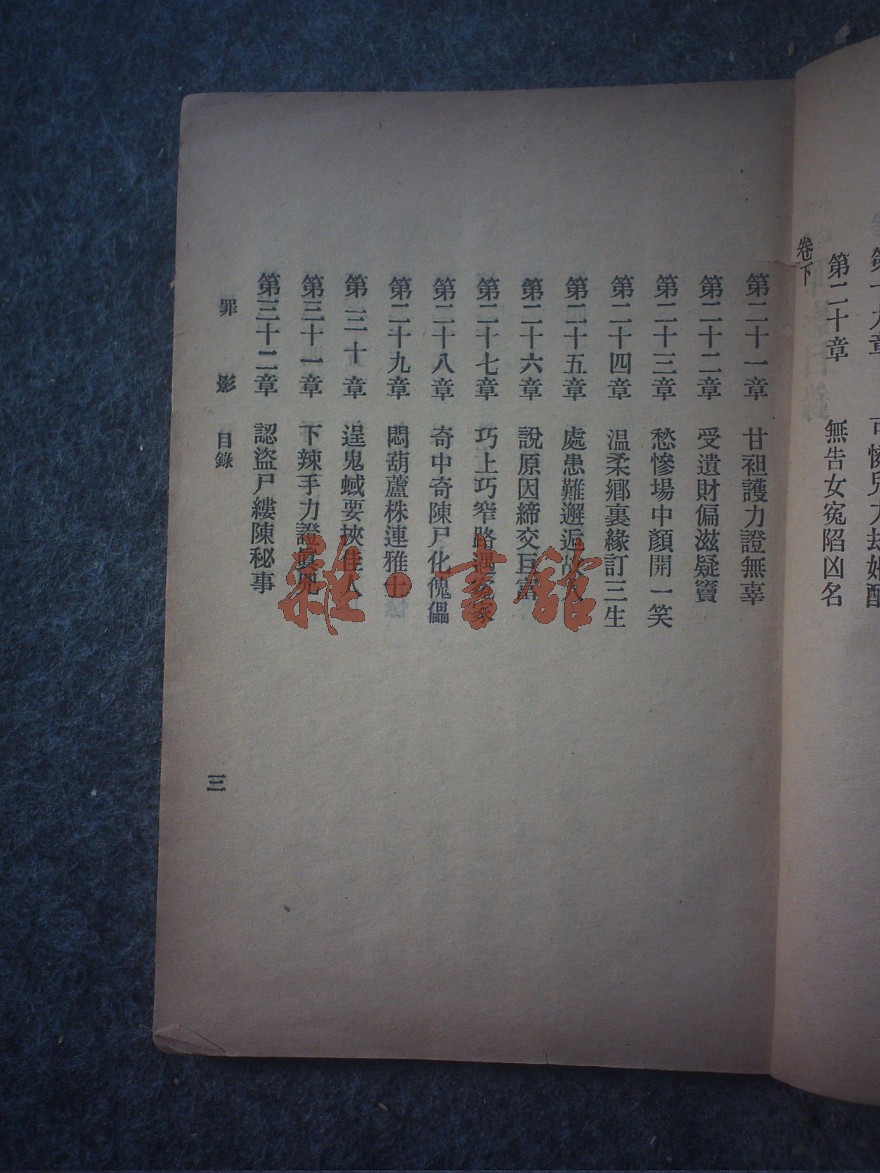 第二十章 無告女冤陷凶名
卷下
第二十一章 甘袒護力證無辜
第二十二章 受遺財偏滋疑竇
第二十三章 愁慘場中顏開一笑
第二十四章 温柔鄉裏緣訂三生
第二十五章 處患難邂逅故人
第二十六章 說原因締交巨富
第二十七章 巧上巧窄路遇冤家
第二十八章 奇中奇陳尸化傀儡
第二十九章 悶葫蘆株連雅士
第三十章 逞鬼蜮要挾佳人
第三十一章 下辣手力證真兇
第三十二章 認盜尸縷陳秘事
罪影 目錄
三
雜·書館